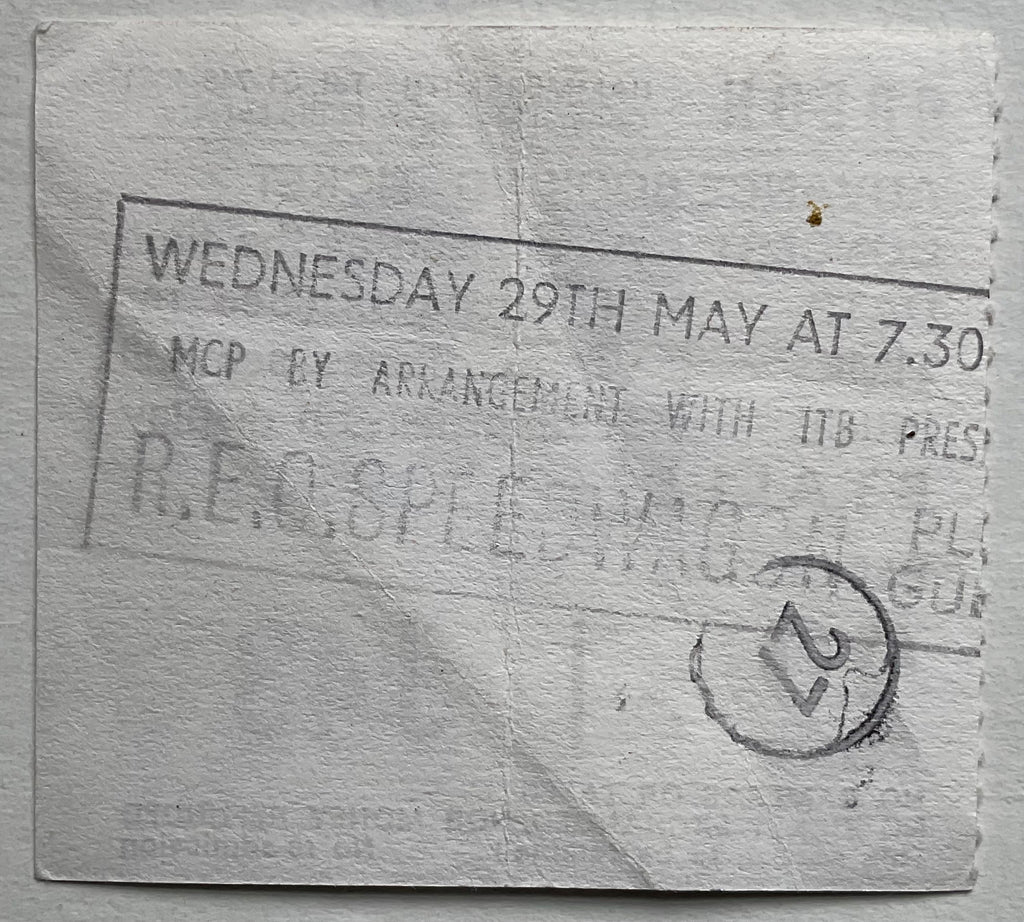 WEDNESDAY 29TH MAY AT 7.30
MCP BY ARRANGEMENT WITH ITB PRES
R.E.O.SPEEDWAGON PL
GU
27